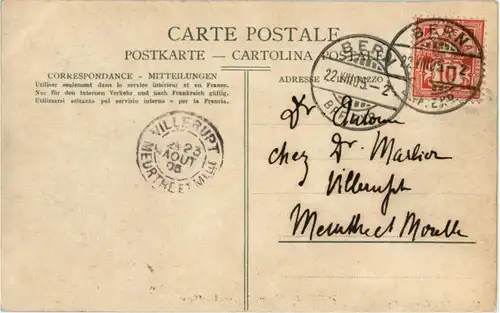 CARTE POSTALE
POSTKARTE — CARTOLINA POSTALE
CORRESPONDANCE - MITTEILUNGEN
Utiliser seulement dans le service intérieur et en France.
Nur für den internen Verkehr und nach Frankreich gültig.
Utilizzarsi soltanto pel servizio interno e per la Francia.
ADRESSE INDIRIZZO
BERN
22.VIII.05.-2
BRE
BERN
10
VILLERUPT
23
AOUT
05
MEURTHE ET Mlle
Dr. Antoine
chez Dr. Marlier
Villerupt
Meurthe et Moselle